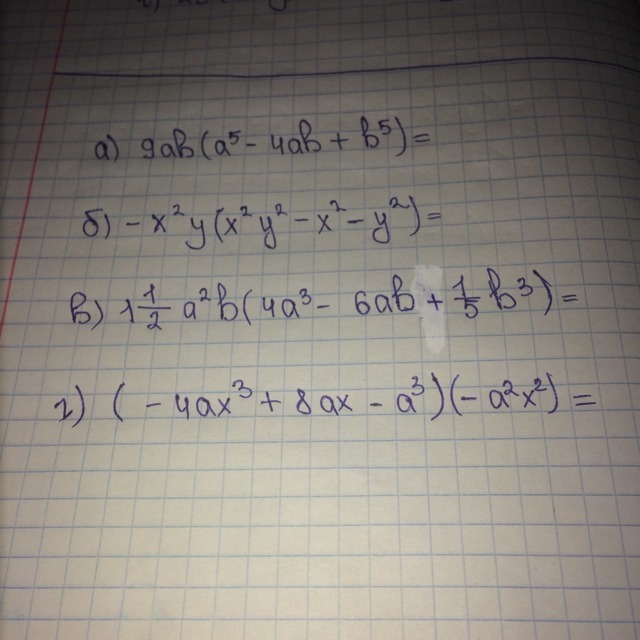 а) 9ab(a⁵ - 4ab + b⁵) =
б) - x²y(x²y² - x² - y²) =
в) 1 1/2 a²b(4a³ - 6ab + 1/5 b³) =
г) (- 4ax³ + 8ax - a³)(- a²x²) =